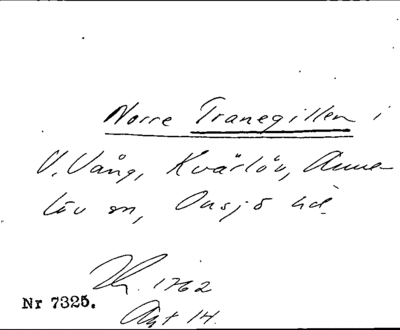 Norre Tranegillen i
V. Vång, Kvärlöv, Anne-
löv sn, Onsjö hd.
1762
Nr 7325.
Akt 14.